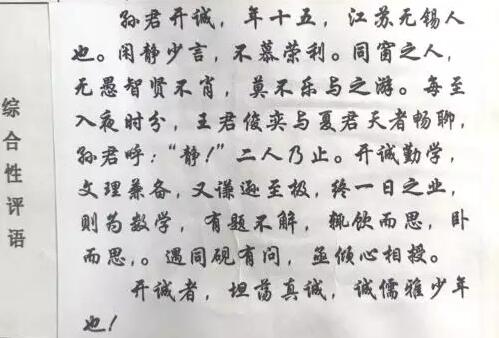 综合性评语
孙君开诚，年十五，江苏无锡人
也。闲静少言，不慕荣利。同窗之人，
无愚智贤不肖，莫不乐与之游。每至
入夜时分，王君俊奕与夏君天者畅聊，
孙君呼：“静！”二人乃止。开诚勤学，
文理兼备，又谦逊至极，终一日之业，
则为数学，有题不解，辄饮而思，卧
而思，。遇同砚有问，亟倾心相授。
开诚者，坦荡真诚，诚儒雅少年
也！